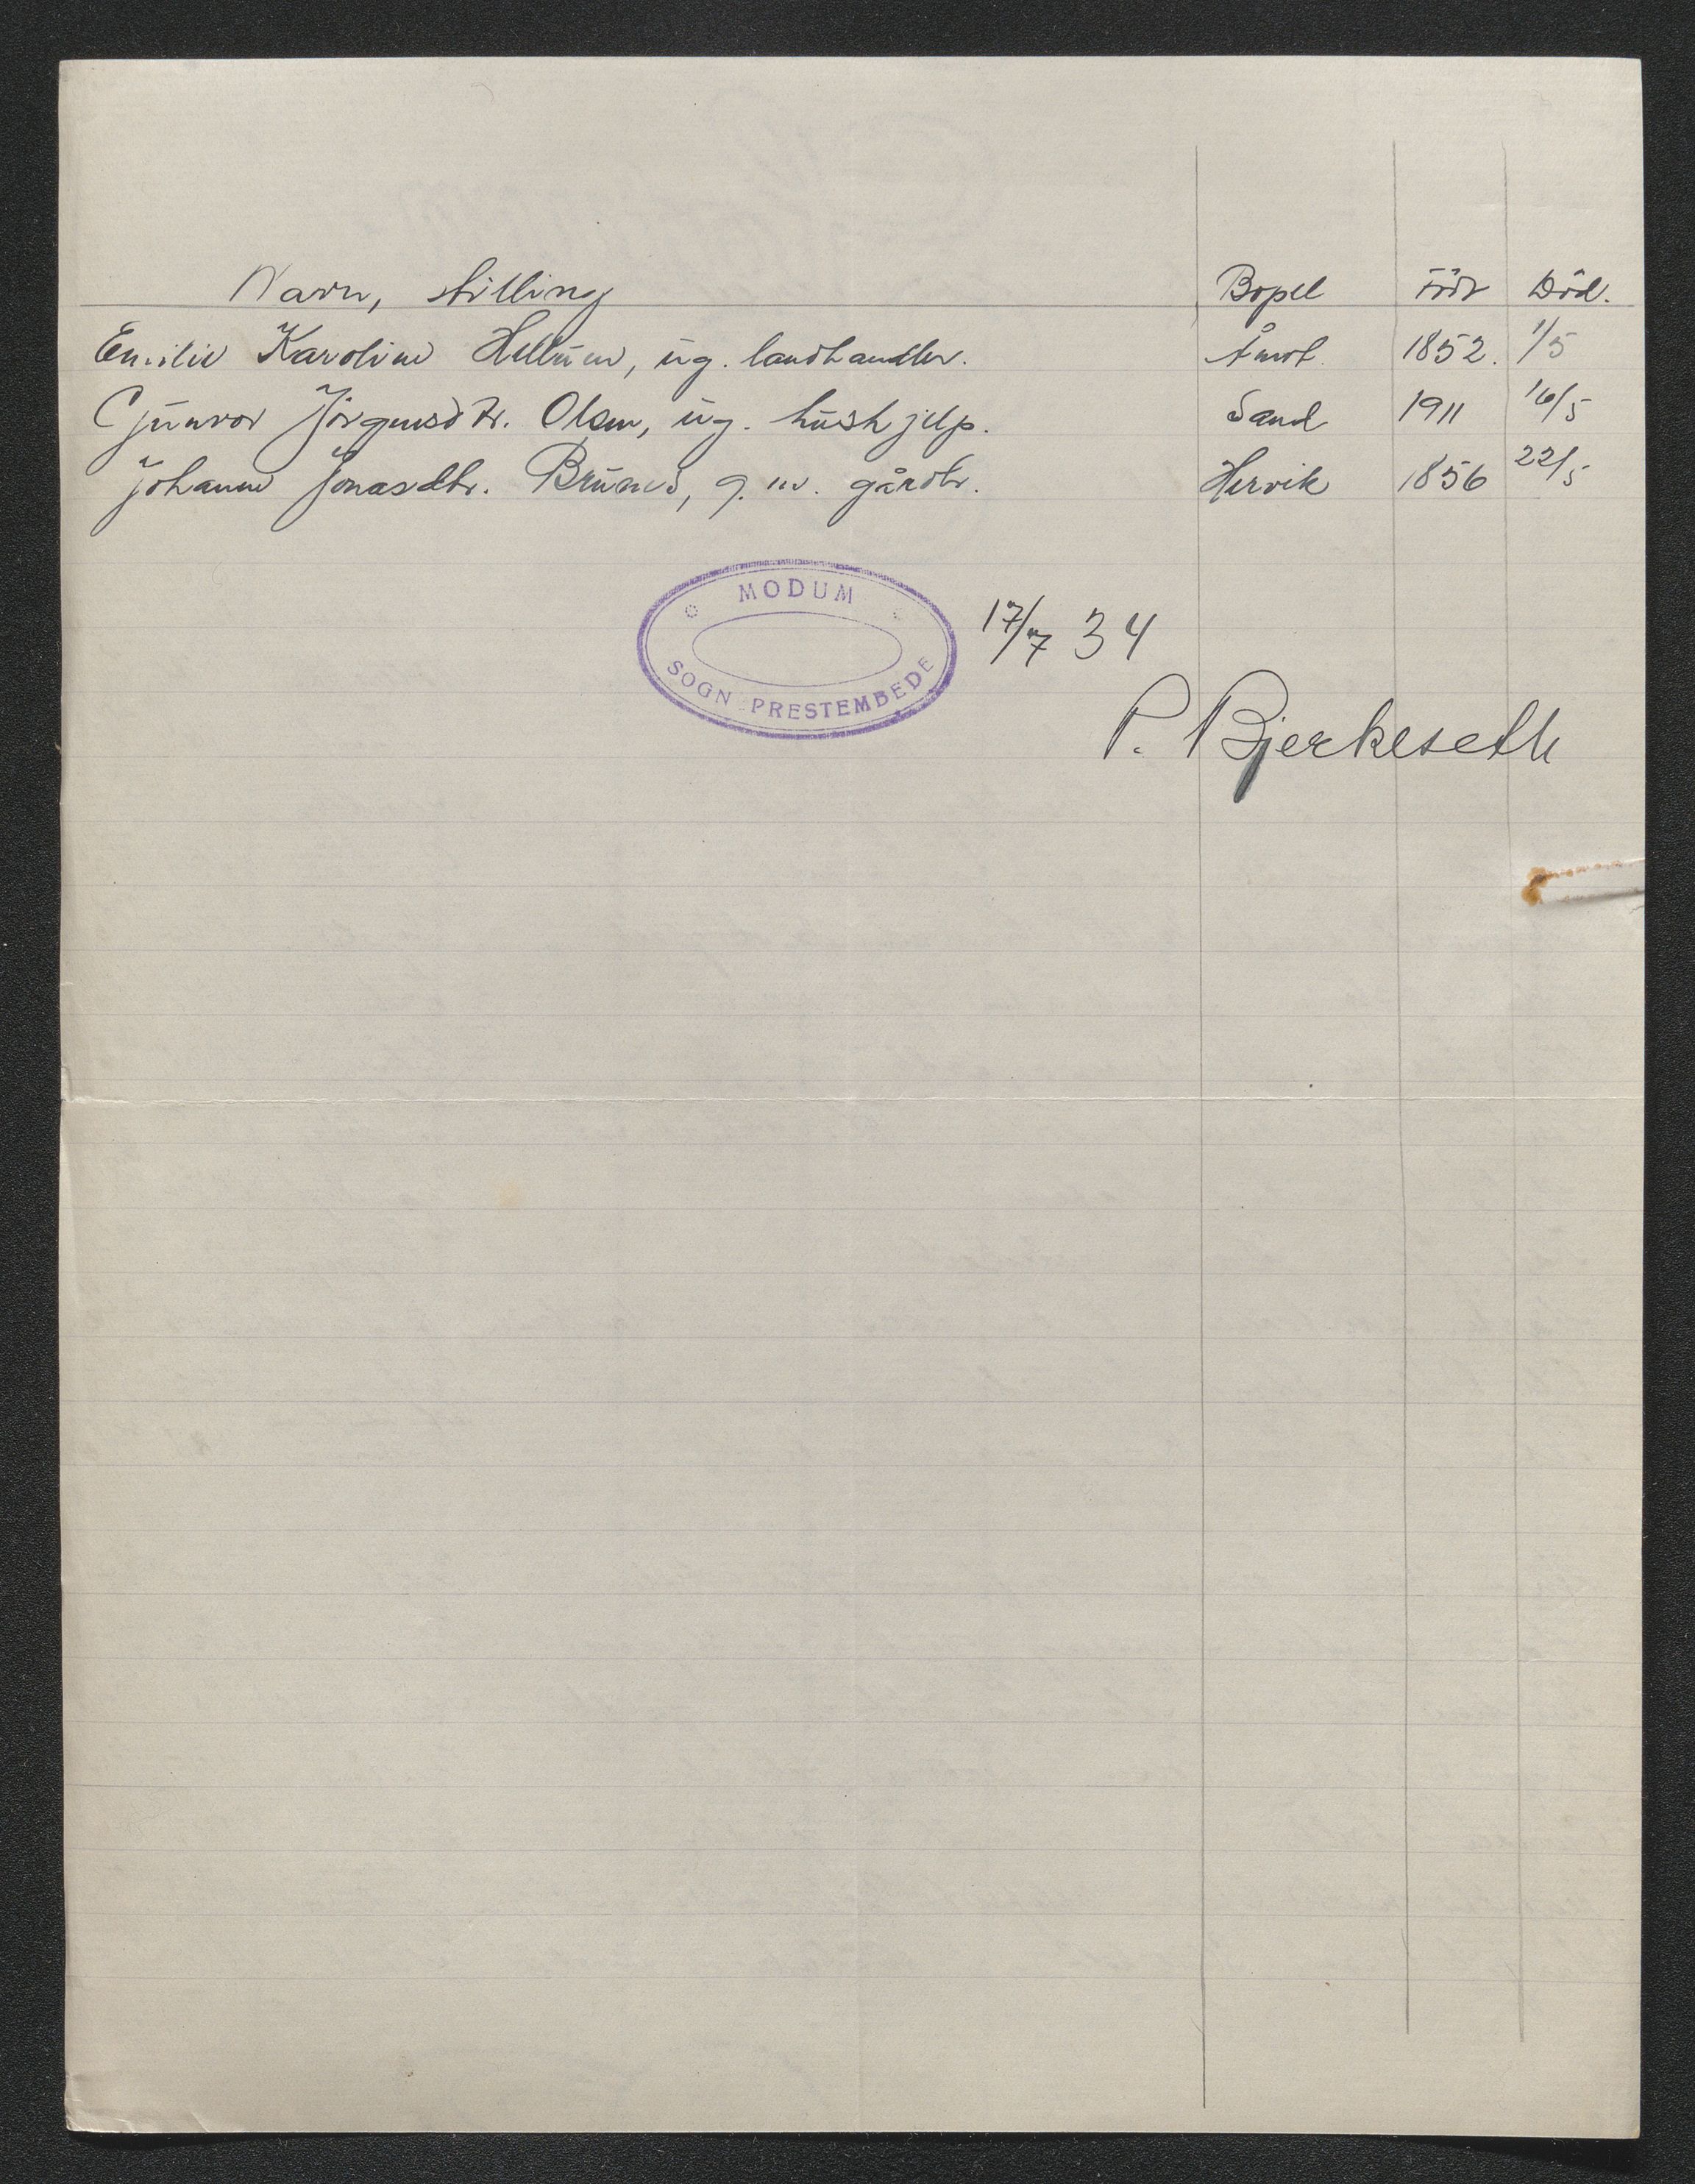 Navn, stilling Bopel Född Död.
Emilie Karoline Hellum, ug. landhandler. Åmot. 1852. 1/5
Gunvor Jörgensdtr. Olsen, ug. hushjelp. Sand 1911 16/5
Johanne Jonasdtr. g.m. gårdbr. Hervik 1856 22/5
MODUM
SOGNEPRESTEMBEDE
17/7 34
P. Bjerkeseth